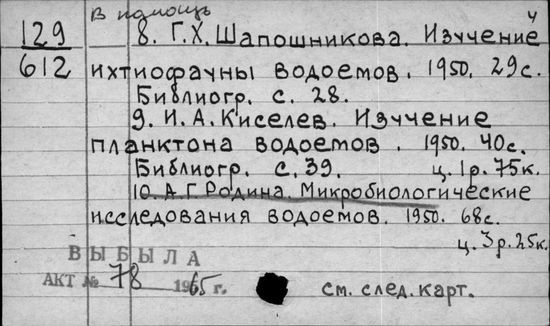 В помощь
4
129
612
8. Г.Х. Шапошникова. Изучение
ихтиофауны водоемов. 1950. 29с.
Библиогр. с. 28.
9. И.А. Киселев. Изучение
планктона водоемов. 1950. 40с.
Библиогр. с. 39. ц. 1р. 75к.
10. А.Г. Родина. Микробиологические
исследования водоемов. 1950. 68с.
ц. 3р. 25к.
ВЫБЫЛА
АКТ № 78 1965 г.
см. след. карт.